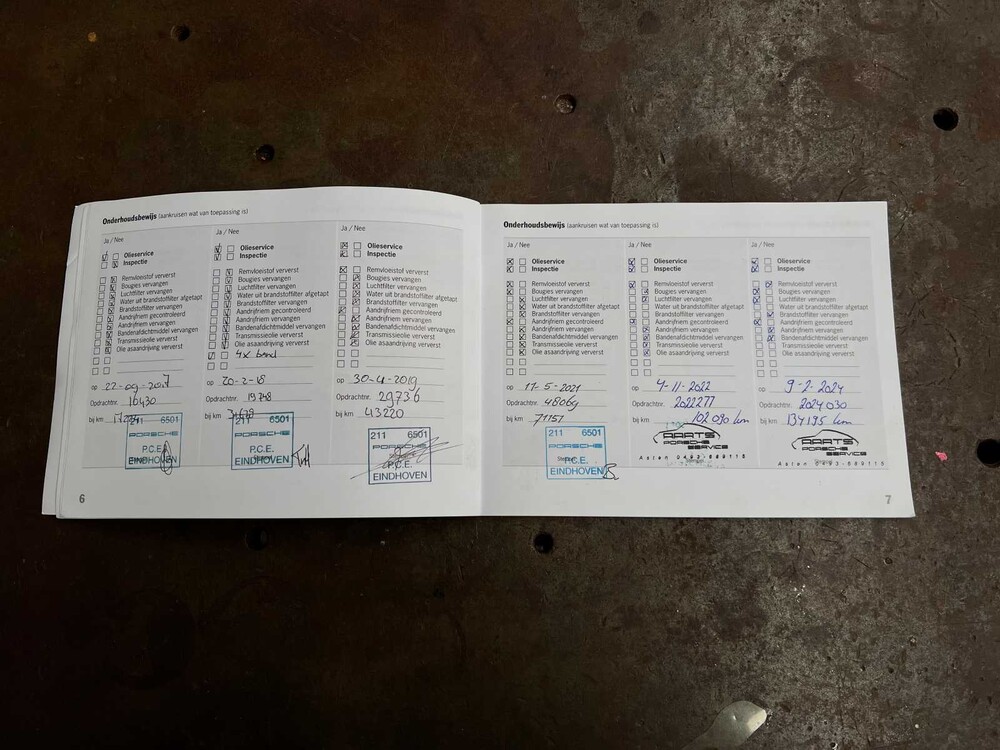 Onderhoudsbewijs (aankruisen wat van toepassing is)
Ja / Nee
Olieservice
Inspectie
Remvloeistof ververst
Bougies vervangen
Luchtfilter vervangen
Water uit brandstoffilter afgetapt
Brandstoffilter vervangen
Aandrijfriem gecontroleerd
Aandrijfriem vervangen
Bandenafdichtmiddel vervangen
Transmissieolie ververst
Olie asaandrijving ververst
op 22-09-2017
Opdrachtnr. 16430
bij km
211 6501
PORSCHE
P.C.E.
EINDHOVEN
Ja / Nee
Olieservice
Inspectie
Remvloeistof ververst
Bougies vervangen
Luchtfilter vervangen
Water uit brandstoffilter afgetapt
Brandstoffilter vervangen
Aandrijfriem gecontroleerd
Aandrijfriem vervangen
Bandenafdichtmiddel vervangen
Transmissieolie ververst
Olie asaandrijving ververst
4x band
op 20-2-18
Opdrachtnr. 19748
bij km
211 6501
PORSCHE
P.C.E.
EINDHOVEN
Ja / Nee
Olieservice
Inspectie
Remvloeistof ververst
Bougies vervangen
Luchtfilter vervangen
Water uit brandstoffilter afgetapt
Brandstoffilter vervangen
Aandrijfriem gecontroleerd
Aandrijfriem vervangen
Bandenafdichtmiddel vervangen
Transmissieolie ververst
Olie asaandrijving ververst
op 30-4-2019
Opdrachtnr. 29736
bij km 43220
211 6501
PORSCHE
P.C.E.
EINDHOVEN
6
Onderhoudsbewijs (aankruisen wat van toepassing is)
Ja / Nee
Olieservice
Inspectie
Remvloeistof ververst
Bougies vervangen
Luchtfilter vervangen
Water uit brandstoffilter afgetapt
Brandstoffilter vervangen
Aandrijfriem gecontroleerd
Aandrijfriem vervangen
Bandenafdichtmiddel vervangen
Transmissieolie ververst
Olie asaandrijving ververst
op 11-5-2021
Opdrachtnr. 48069
bij km 71157
211 6501
PORSCHE
P.C.E.
EINDHOVEN
Ja / Nee
Olieservice
Inspectie
Remvloeistof ververst
Bougies vervangen
Luchtfilter vervangen
Water uit brandstoffilter afgetapt
Brandstoffilter vervangen
Aandrijfriem gecontroleerd
Aandrijfriem vervangen
Bandenafdichtmiddel vervangen
Transmissieolie ververst
Olie asaandrijving ververst
op 4-11-2022
Opdrachtnr. 2022277
bij km 102 090 km
AARTS
PORSCHE
SERVICE
Asten 0493-689115
Ja / Nee
Olieservice
Inspectie
Remvloeistof ververst
Bougies vervangen
Luchtfilter vervangen
Water uit brandstoffilter afgetapt
Brandstoffilter vervangen
Aandrijfriem gecontroleerd
Aandrijfriem vervangen
Bandenafdichtmiddel vervangen
Transmissieolie ververst
Olie asaandrijving ververst
op 9-2-2024
Opdrachtnr. 2024030
bij km 134195 km
AARTS
PORSCHE
SERVICE
Asten 0493-689115
7